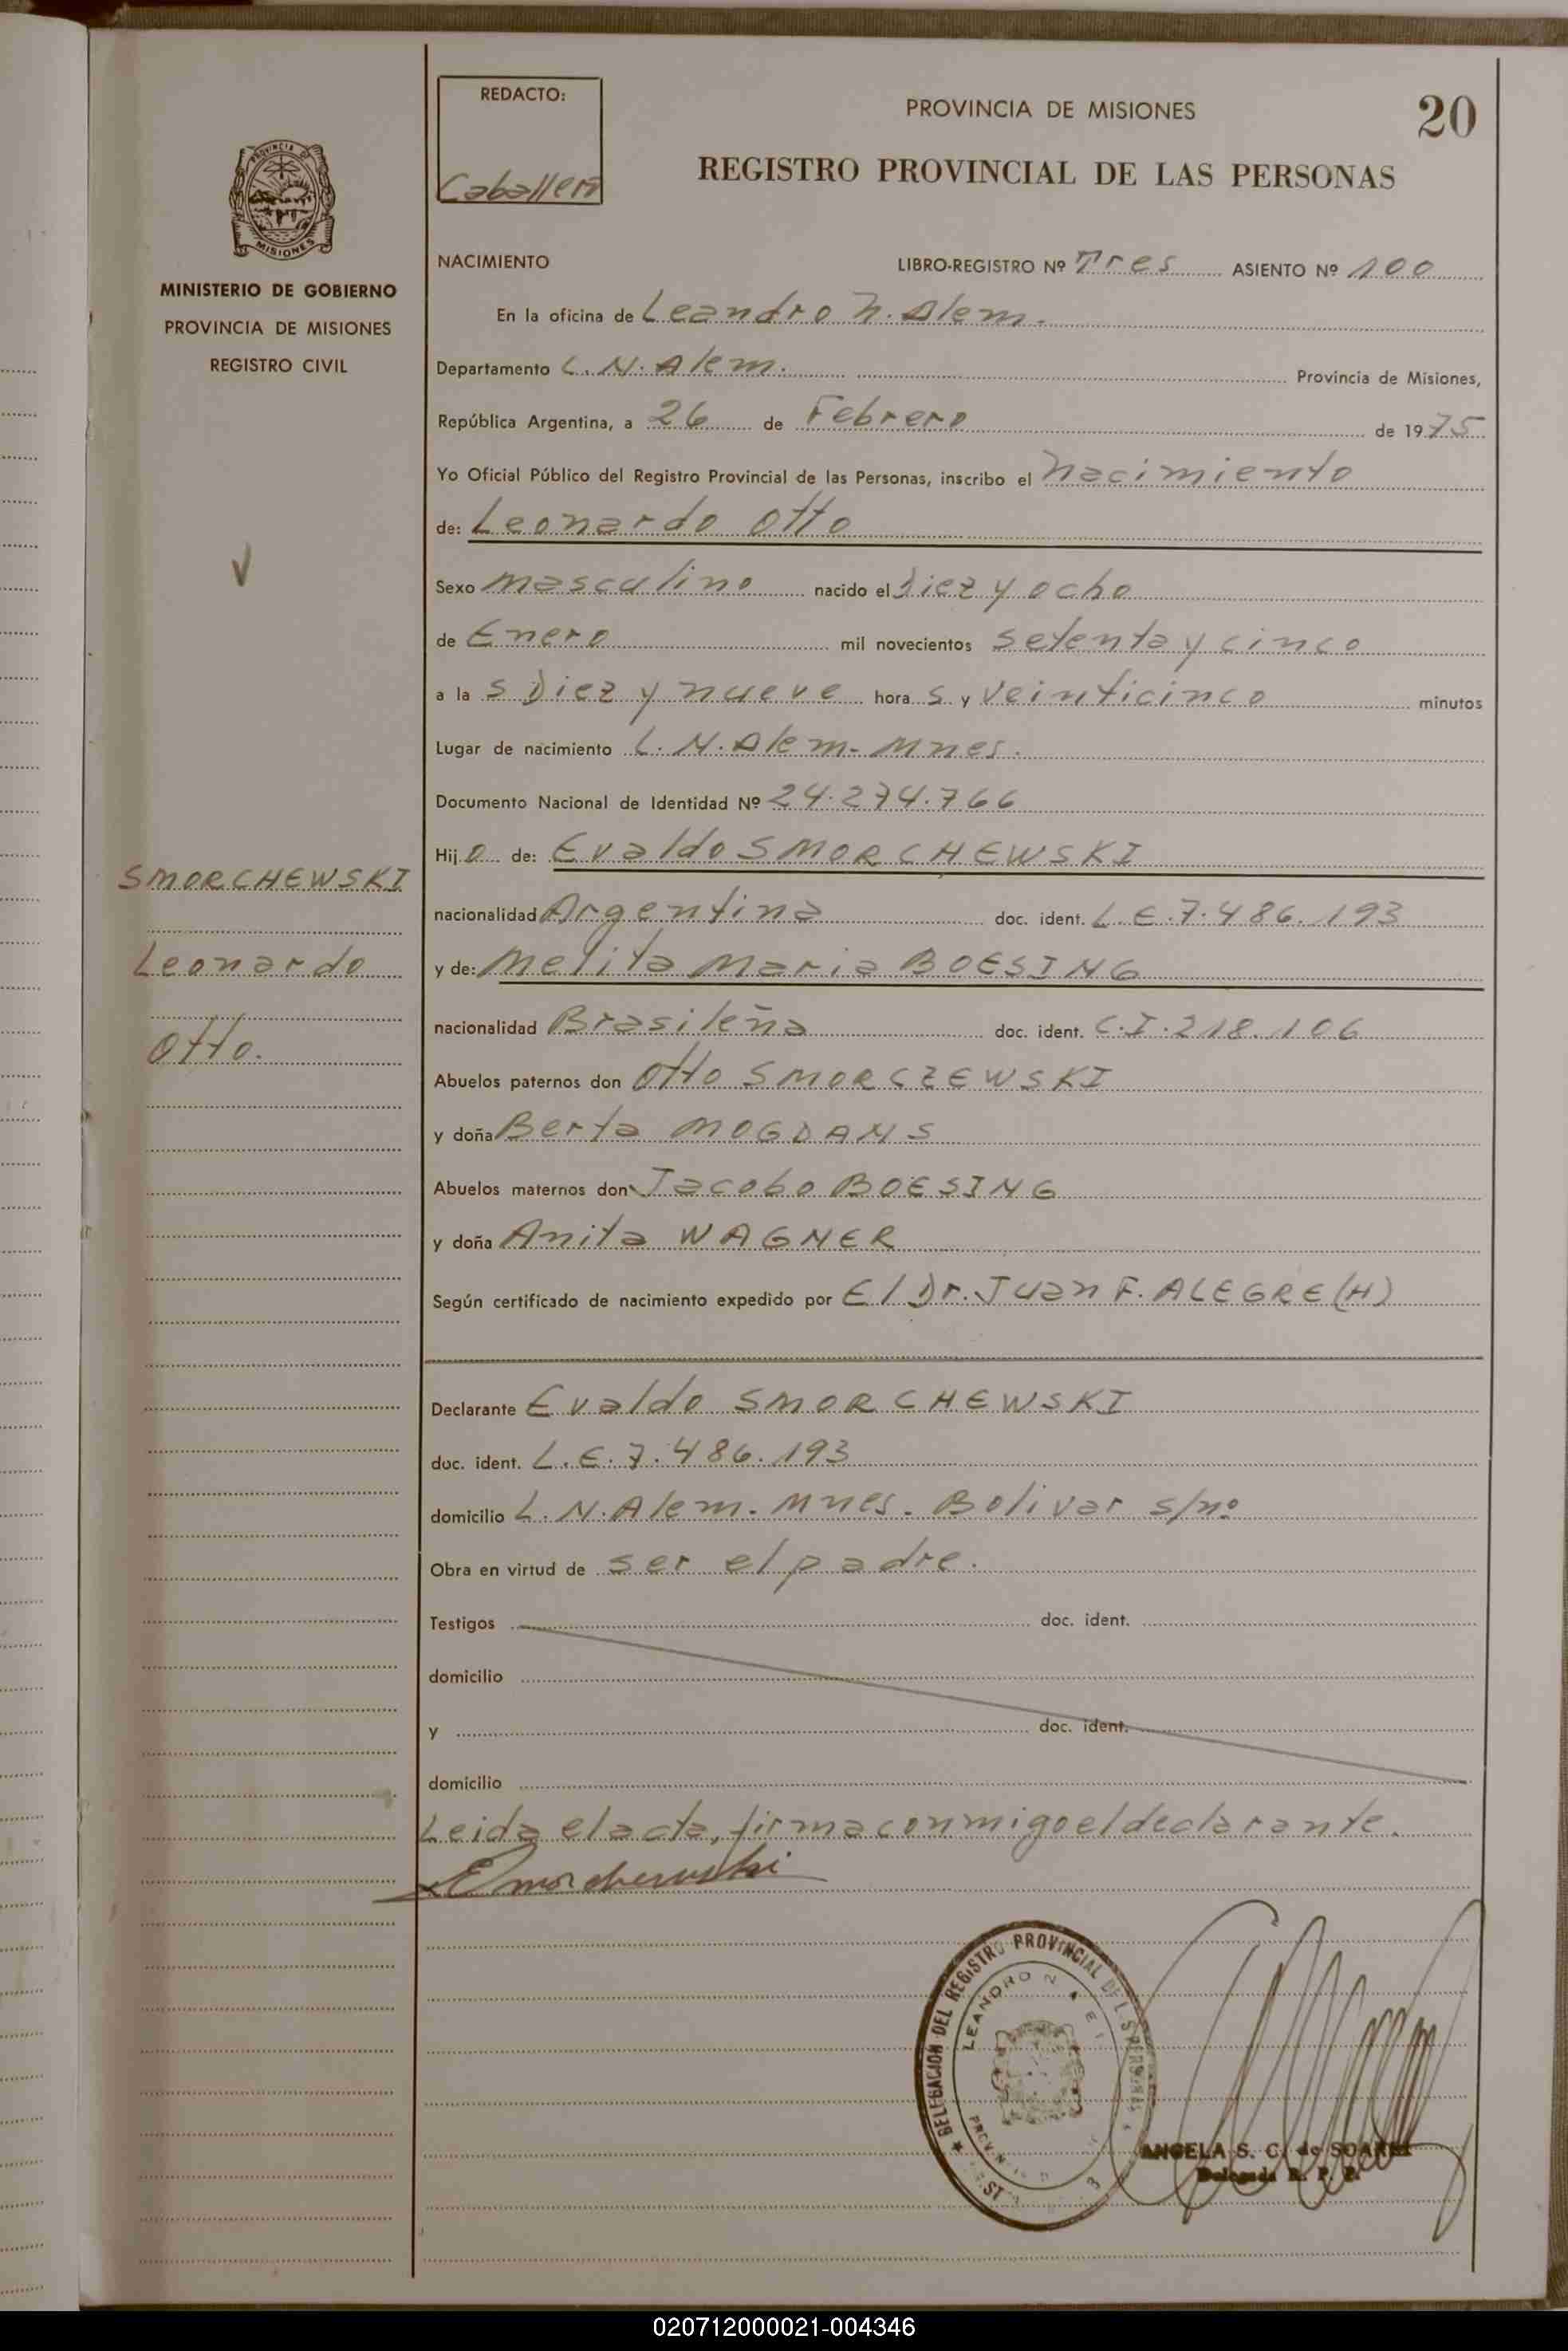 REDACTO:
Caballero
PROVINCIA DE MISIONES
20
REGISTRO PROVINCIAL DE LAS PERSONAS
PROVINCIA DE
MISIONES
MINISTERIO DE GOBIERNO
PROVINCIA DE MISIONES
REGISTRO CIVIL
NACIMIENTO LIBRO-REGISTRO Nº Tres ASIENTO Nº 100
En la oficina de Leandro N. Alem.
Departamento L. N. Alem. Provincia de Misiones,
República Argentina, a 26 de Febrero de 1975
Yo Oficial Público del Registro Provincial de las Personas, inscribo el nacimiento
de: Leonardo Otto
Sexo masculino nacido el Diez y ocho
de Enero mil novecientos setenta y cinco
a la s Diez y nueve hora s y veinticinco minutos
Lugar de nacimiento L. N. Alem - Mnes.
Documento Nacional de Identidad Nº 24.274.766
Hij o de: Evaldo SMORCHEWSKI
SMORCHEWSKI
Leonardo
Otto.
nacionalidad Argentina doc. ident. L.E.7.486.193
y de: Melita Maria BOESING
nacionalidad Brasileña doc. ident. C.I.218.106
Abuelos paternos don Otto SMORCZEWSKI
y doña Berta MOGDANS
Abuelos maternos don Jacobo BOESING
y doña Anita WAGNER
Según certificado de nacimiento expedido por El Dr. Juan F. ALEGRE (H)
Declarante Evaldo SMORCHEWSKI
doc. ident. L.E.7.486.193
domicilio L. N. Alem. Mnes. Bolivar s/nº
Obra en virtud de ser el padre.
Testigos doc. ident.
domicilio
y doc. ident.
domicilio
Leida el acta, firma conmigo el declarante.
ESmorchewski
DELEGACION DEL REGISTRO PROVINCIAL DE LAS PERSONAS
LEANDRO N
ANGELA S. C. de SOAREZ
Delegada R. P. P.
020712000021-004346